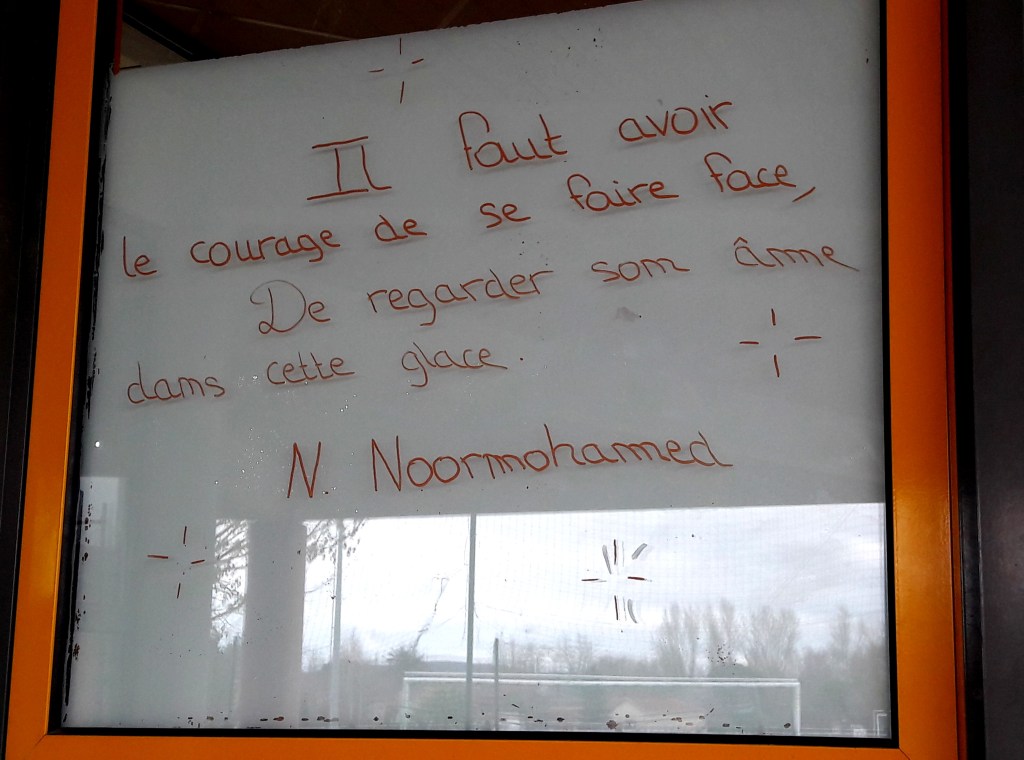 Il faut avoir
le courage de se faire face,
De regarder son âme
dans cette glace.
N. Noormohamed